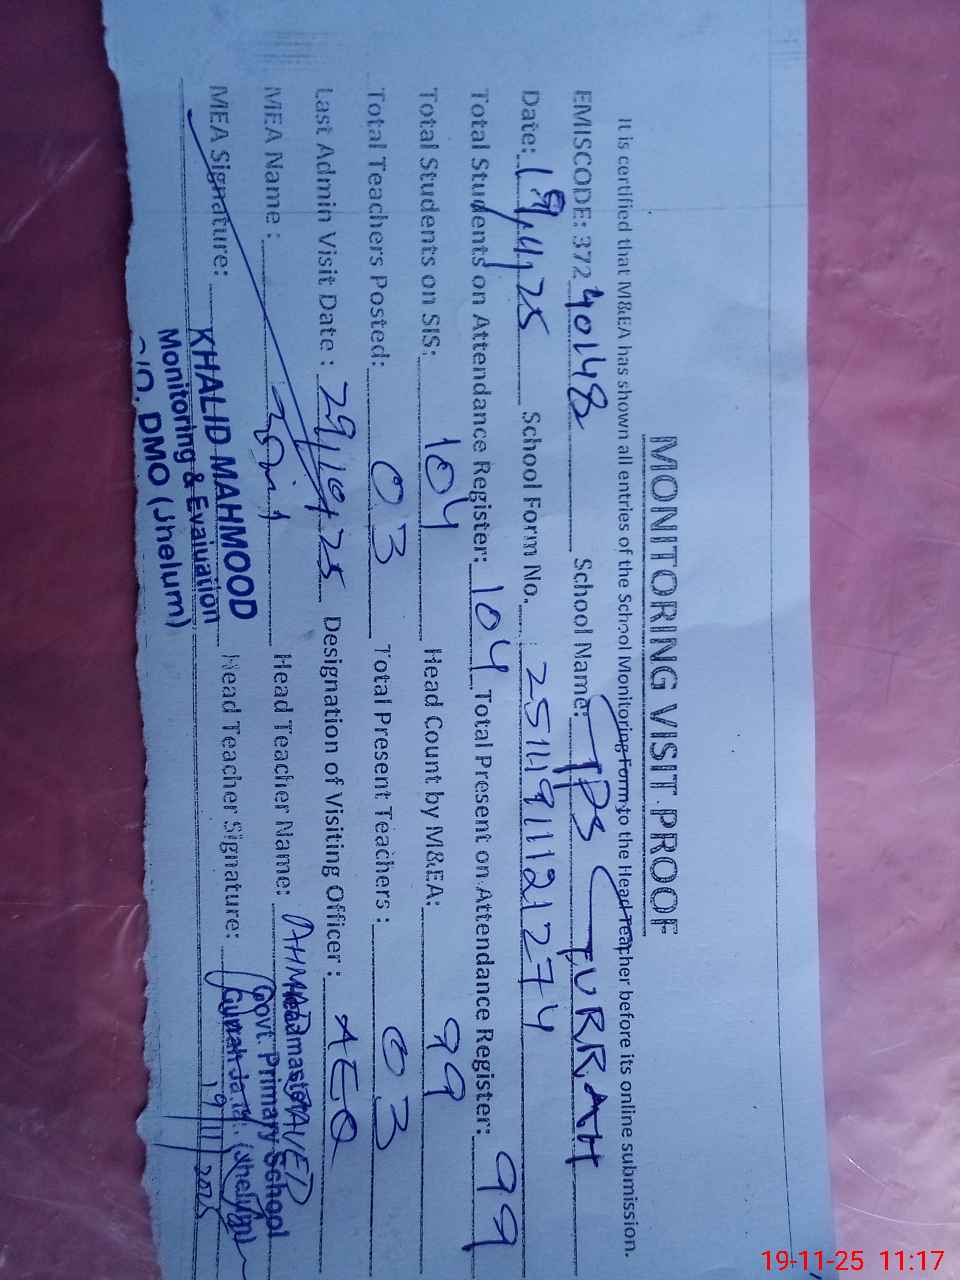 MONITORING VISIT PROOF
It is certified that M&EA has shown all entries of the School Monitoring Form to the Head Teacher before its online submission.
EMISCODE: 372 40148 School Name: GPS GURRAH
Date: 19/11/25 School Form No. 2511191112127 4
Total Students on Attendance Register: 104 Total Present on Attendance Register: 99
Total Students on SIS: 104 Head Count by M&EA: 99
Total Teachers Posted: 03 Total Present Teachers: 03
Last Admin Visit Date: 29/10/25 Designation of Visiting Officer: AEO
MEA Name: Head Teacher Name: AHMAD JAVED
MEA Signature: Head Teacher Signature:
KHALID MAHMOOD
Monitoring & Evaluation
O/O. DMO (Jhelum)
Headmaster
Govt. Primary School
(Jhelum)
19/11/2025
19-11-25 11:17